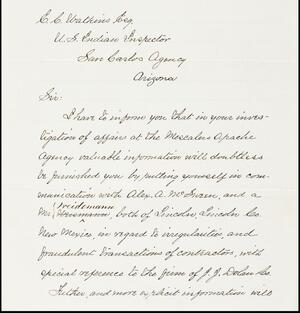 E. C. Watkins Esq.
U. S. Indian Inspector
San Carlos Agency
Arizona
Sir:
I have to inform you that in your inves-
tigation of affairs at the Mescalero Apache
Agency valuable information will doubtless
be furnished you by putting yourself in com-
munication with Alex. A. McSwain, and a
Mr. Weidemann, both of Lincoln, Lincoln Co.
New Mexico, in regard to irregularities, and
fraudulent transactions of contractors, with
special reference to the firm of J. J. Dolan Co.
Further, and more explicit information will